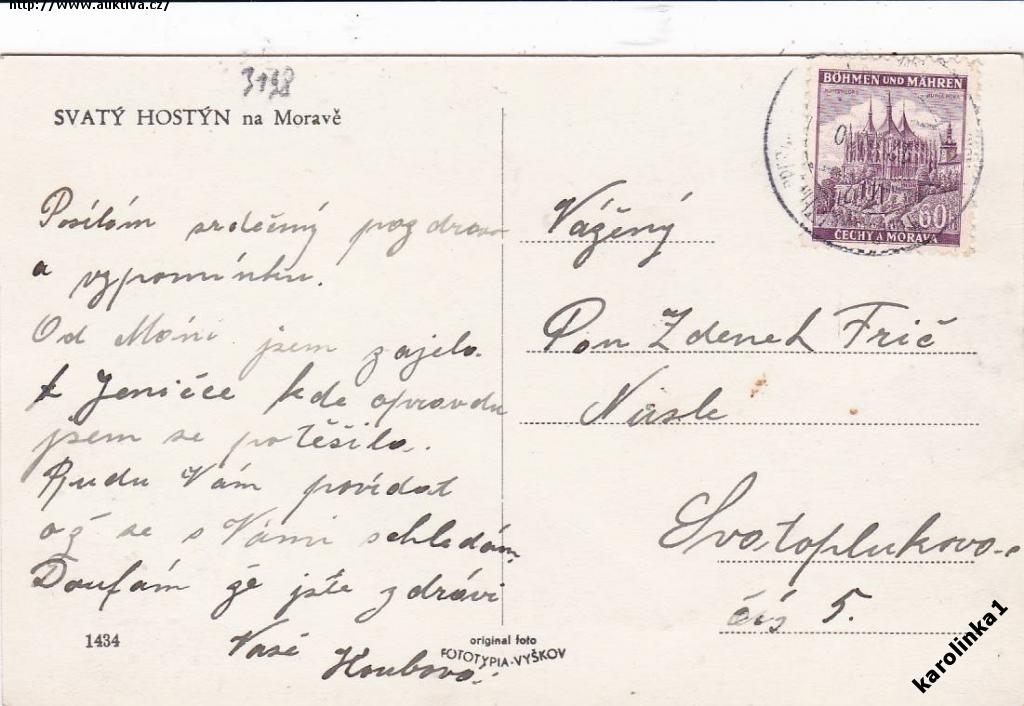 http://www.auktiva.cz/
3198
SVATÝ HOSTÝN na Moravě
Posílám srdečný pozdrav
a vzpomínku.
Od Máni jsem zajela
k Jeničce kde opravdu
jsem se potěšila.
Budu Vám povídat
až se s Vámi schledám
Doufám že jste zdrávi
Vaše
Houbova.
1434
original foto
FOTOTYPIA-VYŠKOV
BÖHMEN UND MÄHREN
60h
ČECHY A MORAVA
Vážený
Pan Zdenek Frič
Nusle
Svatoplukova
čís 5.
karolinka1